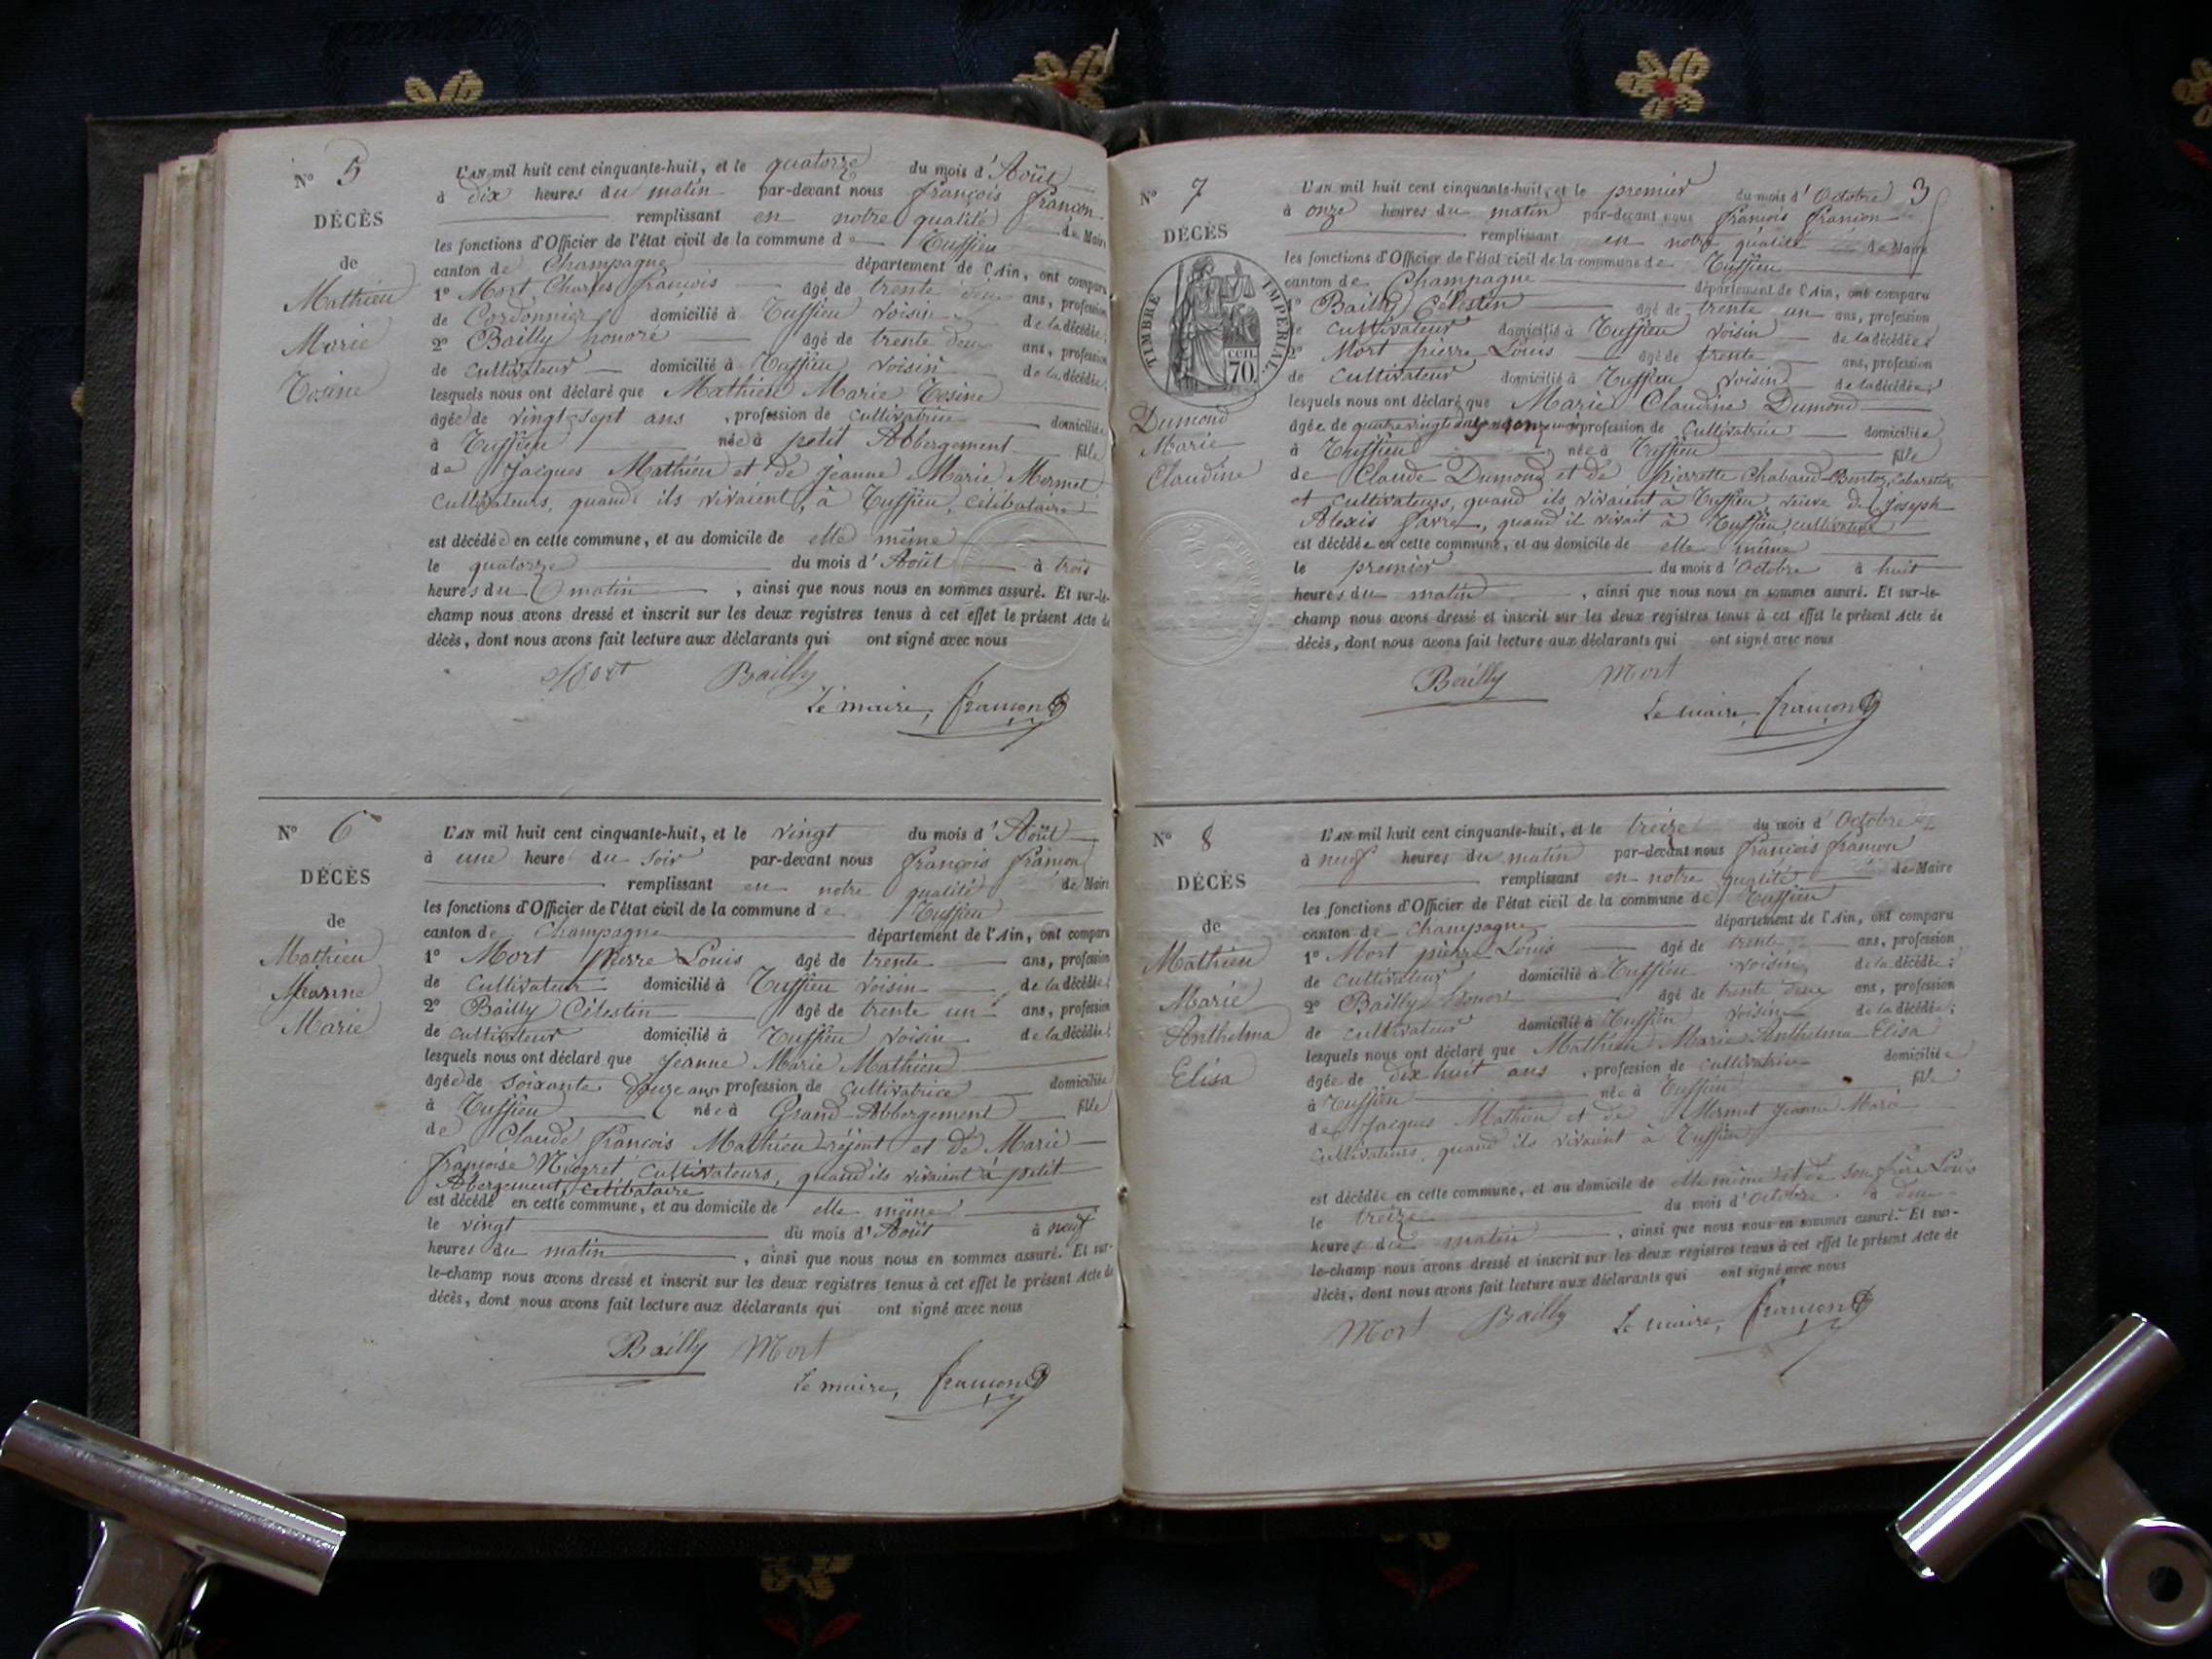 N° 5
DÉCÈS
de
Mathieu
Marie
Rosine
L'AN mil huit cent cinquante-huit, et le quatorze du mois d'Août
à dix heures du matin par-devant nous françois françon
remplissant en notre qualité de Maire
les fonctions d'Officier de l'état civil de la commune de Ruffieu
canton de Champagne département de l'Ain, ont comparu
1° Mort Charles françois âgé de trente ans, profession
de Cordonnier domicilié à Ruffieu voisin de la décédée;
2° Bailly honoré âgé de trente deux ans, profession
de cultivateur domicilié à Ruffieu voisin de la décédée;
lesquels nous ont déclaré que Mathieu Marie Rosine
âgée de vingt-sept ans, profession de cultivatrice domiciliée
à Ruffieu née à petit Abbergement fille
de Jacques Mathieu et de jeanne Marie Mermet
cultivateurs, quand ils vivaient, à Ruffieu, célibataire
est décédée en cette commune, et au domicile de elle même
le quatorze du mois d'Août à trois
heures du matin, ainsi que nous nous en sommes assuré. Et sur-le-
champ nous avons dressé et inscrit sur les deux registres tenus à cet effet le présent Acte de
décès, dont nous avons fait lecture aux déclarants qui ont signé avec nous
Mort Bailly
Le maire, françon
N° 6
DÉCÈS
de
Mathieu
Jeanne
Marie
L'AN mil huit cent cinquante-huit, et le vingt du mois d'Août
à une heure du soir par-devant nous françois françon
remplissant en notre qualité de Maire
les fonctions d'Officier de l'état civil de la commune de Ruffieu
canton de Champagne département de l'Ain, ont comparu
1° Mort pierre Louis âgé de trente ans, profession
de cultivateur domicilié à Ruffieu voisin de la décédée;
2° Bailly Célestin âgé de trente un ans, profession
de cultivateur domicilié à Ruffieu voisin de la décédée;
lesquels nous ont déclaré que Jeanne Marie Mathieu
âgée de soixante douze ans profession de cultivatrice domiciliée
à Ruffieu née à Grand-Abbergement fille
de Claude françois Mathieu et de Marie
françoise cultivateurs, quand ils vivaient à petit
Abergement, célibataire
est décédé en cette commune, et au domicile de elle même
le vingt du mois d'Août à neuf
heures du matin, ainsi que nous nous en sommes assuré. Et sur-
le-champ nous avons dressé et inscrit sur les deux registres tenus à cet effet le présent Acte de
décès, dont nous avons fait lecture aux déclarants qui ont signé avec nous
Bailly Mort
Le maire, françon
3
N° 7
DÉCÈS
TIMBRE IMPERIAL
CEN. 70.
Dumond
Marie
Claudine
L'AN mil huit cent cinquante-huit, et le premier du mois d'Octobre
à onze heures du matin par-devant nous françois françon
remplissant en notre qualité de Maire
les fonctions d'Officier de l'état civil de la commune de Ruffieu
canton de Champagne département de l'Ain, ont comparu
1° Bailly Célestin âgé de trente un ans, profession
de cultivateur domicilié à Ruffieu voisin de la décédée
2° Mort pierre Louis âgé de trente ans, profession
de cultivateur domicilié à Ruffieu voisin de la décédée;
lesquels nous ont déclaré que Marie Claudine Dumond
âgée de quatre vingt profession de cultivatrice domiciliée
à Ruffieu née à Ruffieu fille
de Claude Dumond et de pierrette Chaband
et cultivateurs, quand ils vivaient à Ruffieu veuve de Joseph
Alexis favre, quand il vivait à Ruffieu cultivateur
est décédée en cette commune, et au domicile de elle même
le premier du mois d'Octobre à huit
heures du matin, ainsi que nous nous en sommes assuré. Et sur-le-
champ nous avons dressé et inscrit sur les deux registres tenus à cet effet le présent Acte de
décès, dont nous avons fait lecture aux déclarants qui ont signé avec nous
Bailly Mort
Le maire, françon
N° 8
DÉCÈS
de
Mathieu
Marie
Anthelma
Elisa
L'AN mil huit cent cinquante-huit, et le treize du mois d'Octobre
à neuf heures du matin par-devant nous françois françon
remplissant en notre qualité de Maire
les fonctions d'Officier de l'état civil de la commune de Ruffieu
canton de Champagne département de l'Ain, ont comparu
1° Mort pierre Louis âgé de trente ans, profession
de cultivateur domicilié à Ruffieu voisin de la décédée;
2° Bailly honoré âgé de trente deux ans, profession
de cultivateur domicilié à Ruffieu voisin de la décédée;
lesquels nous ont déclaré que Mathieu Marie Anthelma Elisa
âgée de dix huit ans, profession de cultivatrice domiciliée
à Ruffieu née à Ruffieu fille
de Jacques Mathieu et de Mermet jeanne Marie
cultivateurs, quand ils vivaient à Ruffieu
est décédée en cette commune, et au domicile de elle même et de son frère Louis
le treize du mois d'Octobre à deux
heures du matin, ainsi que nous nous en sommes assuré. Et sur-
le-champ nous avons dressé et inscrit sur les deux registres tenus à cet effet le présent Acte de
décès, dont nous avons fait lecture aux déclarants qui ont signé avec nous
Mort Bailly Le maire, françon